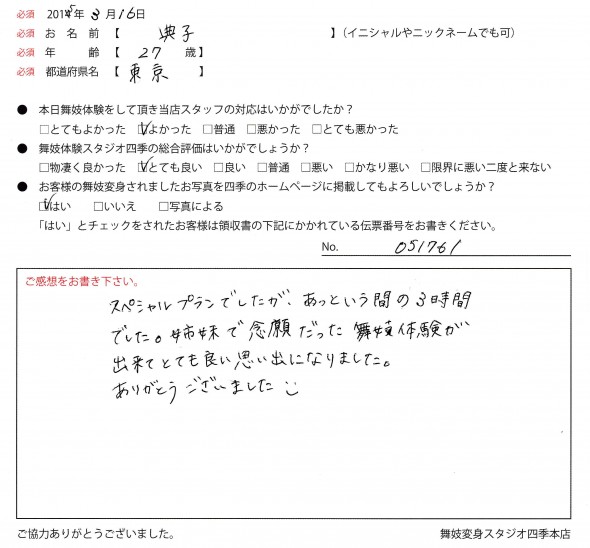 必須 2015年 3月16日
必須 お名前【 典子 】(イニシャルやニックネームでも可)
必須 年齢【 27 歳】
必須 都道府県名【 東京 】
● 本日舞妓体験をして頂き当店スタッフの対応はいかがでしたか？
□とてもよかった ☑よかった □普通 □悪かった □とても悪かった
● 舞妓体験スタジオ四季の総合評価はいかがでしょうか？
□物凄く良かった ☑とても良い □良い □普通 □悪い □かなり悪い □限界に悪い二度と来ない
● お客様の舞妓変身されましたお写真を四季のホームページに掲載してもよろしいでしょうか？
☑はい □いいえ □写真による
「はい」とチェックをされたお客様は領収書の下記にかかれている伝票番号をお書きください。
No. 051761
ご感想をお書き下さい。
スペシャルプランでしたが、あっという間の3時間
でした。姉妹で念願だった舞妓体験が
出来てとても良い思い出になりました。
ありがとうございました
ご協力ありがとうございました。 舞妓変身スタジオ四季本店